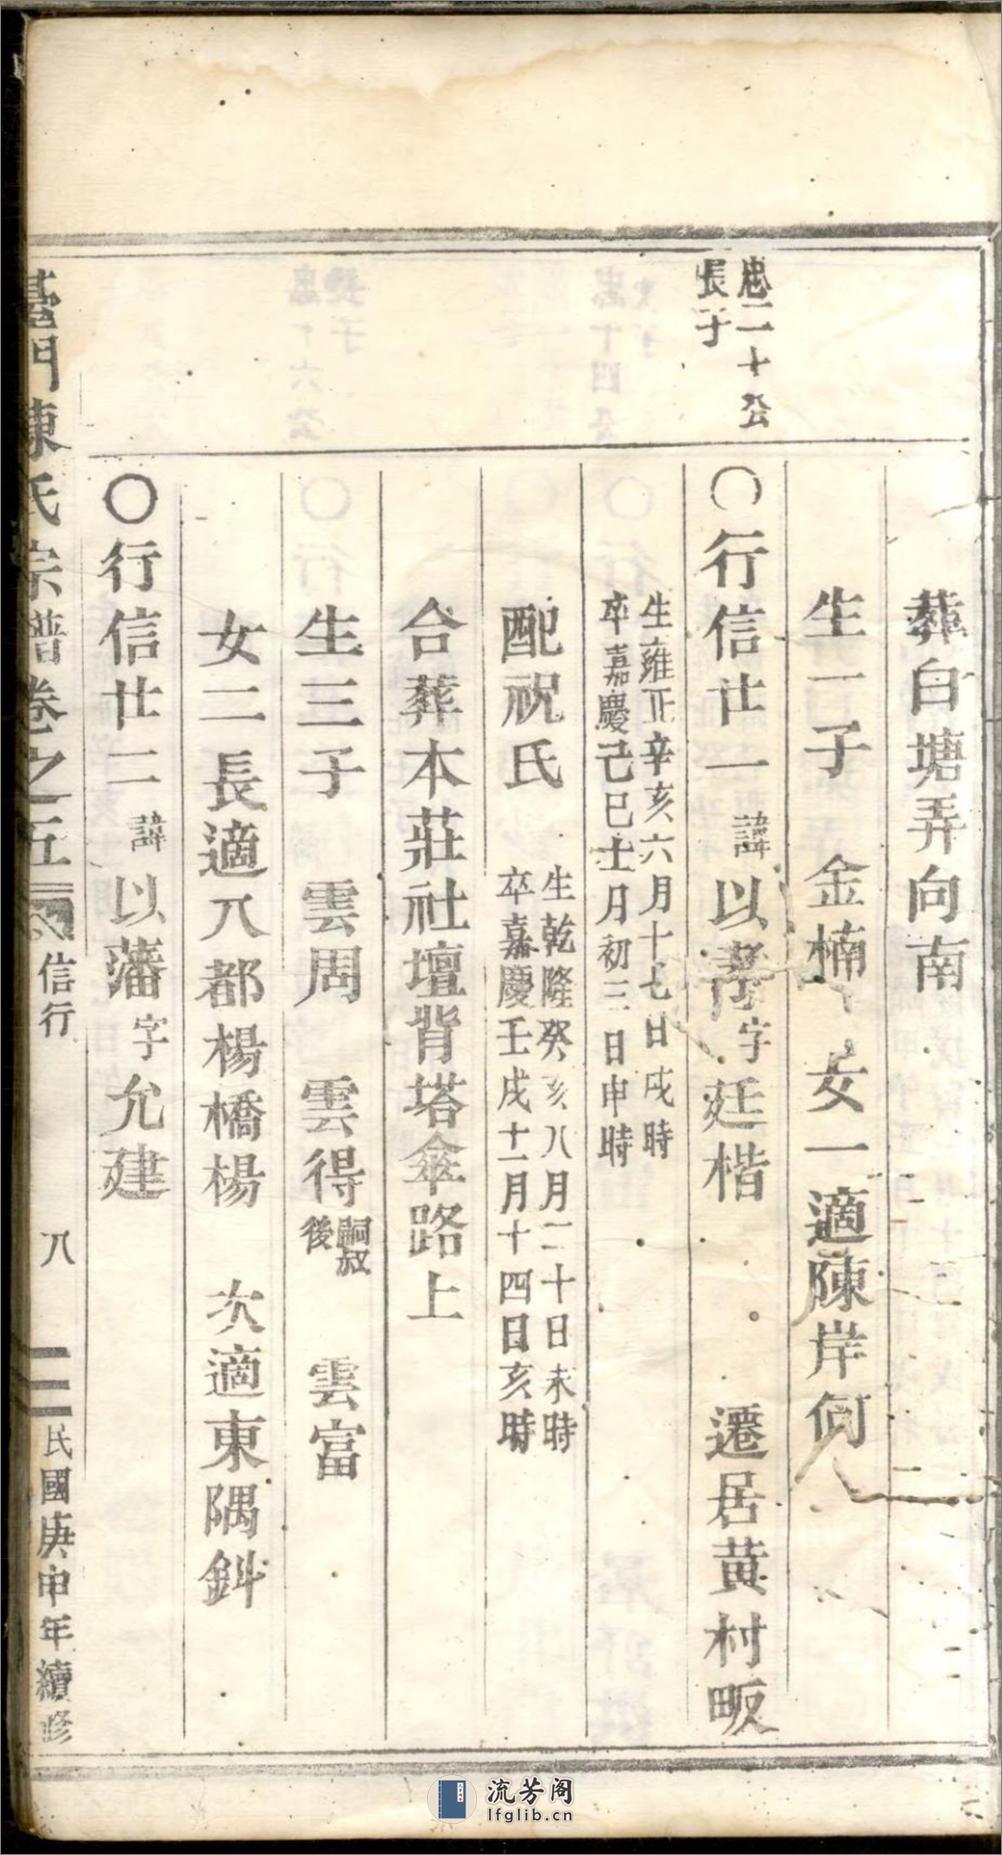 葬白塘弄向南
生一子 金楠 女一適陳岸何
忠二十公
長子
〇行信廿一 諱以孝字廷楷 遷居黃村畈
生雍正辛亥六月十七日戌時
卒嘉慶己巳十一月初三日申時
配祝氏
生乾隆癸亥八月二十日未時
卒嘉慶壬戌十一月十四日亥時
合葬本莊社壇背塔傘路上
生三子 雲周 雲得嗣叔後 雲富
女二長適八都楊橋楊 次適東隅鈄
〇行信廿二 諱以藩字允建
臺門陳氏宗譜卷之五 信行 八 民國庚申年續修
流芳阁
lfglib.cn